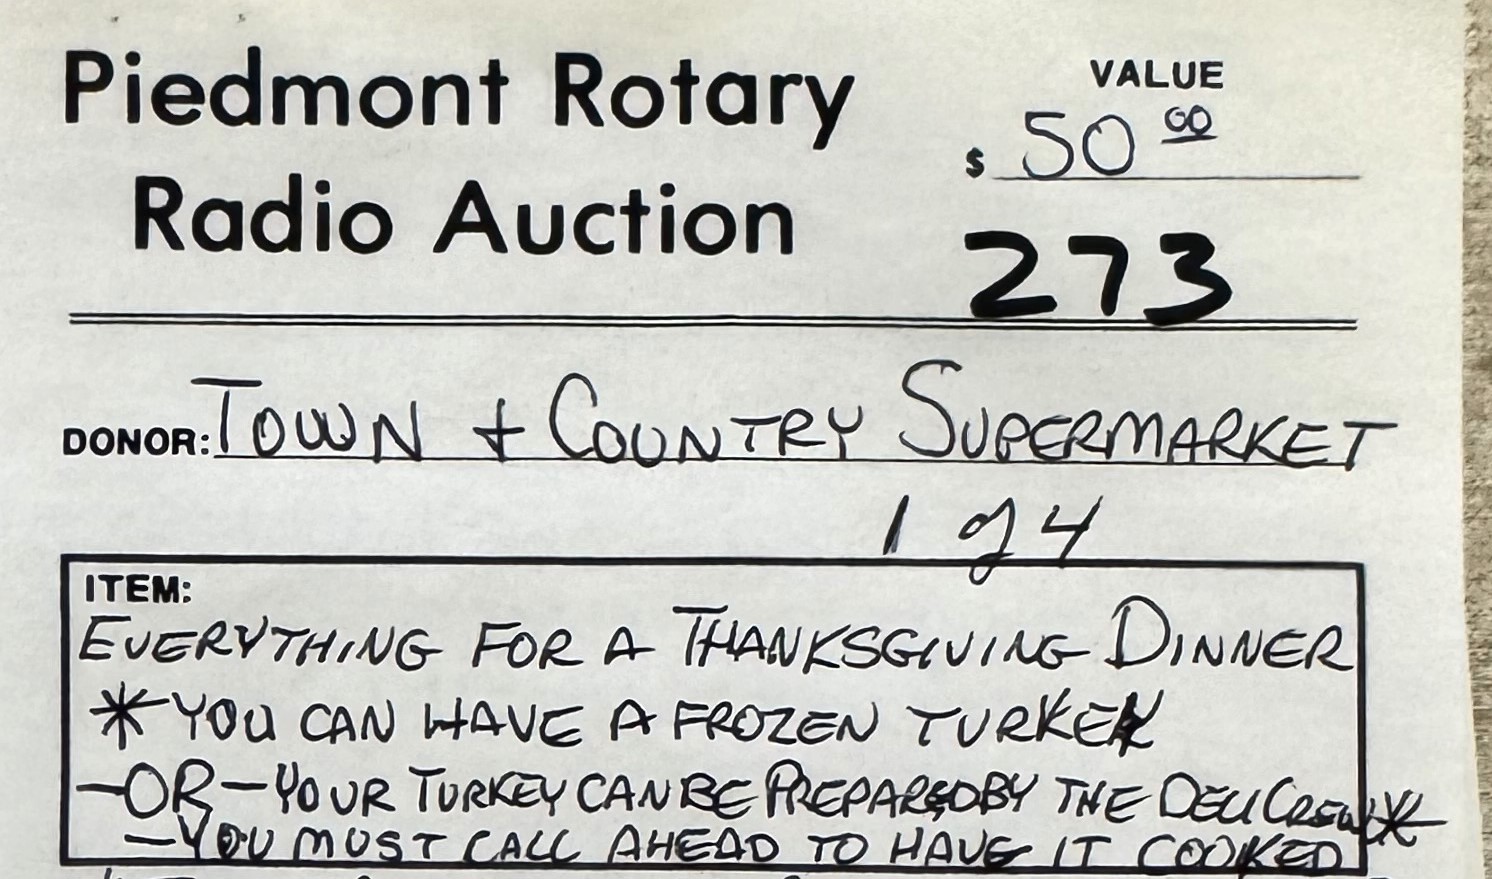 Piedmont Rotary
Radio Auction
VALUE
$ 50 00
273
DONOR: TOWN + COUNTRY SUPERMARKET
1 of 4
ITEM:
EVERYTHING FOR A THANKSGIVING DINNER
* YOU CAN HAVE A FROZEN TURKEY
—OR— YOUR TURKEY CAN BE PREPARED BY THE DELI CREW *
— YOU MUST CALL AHEAD TO HAVE IT COOKED